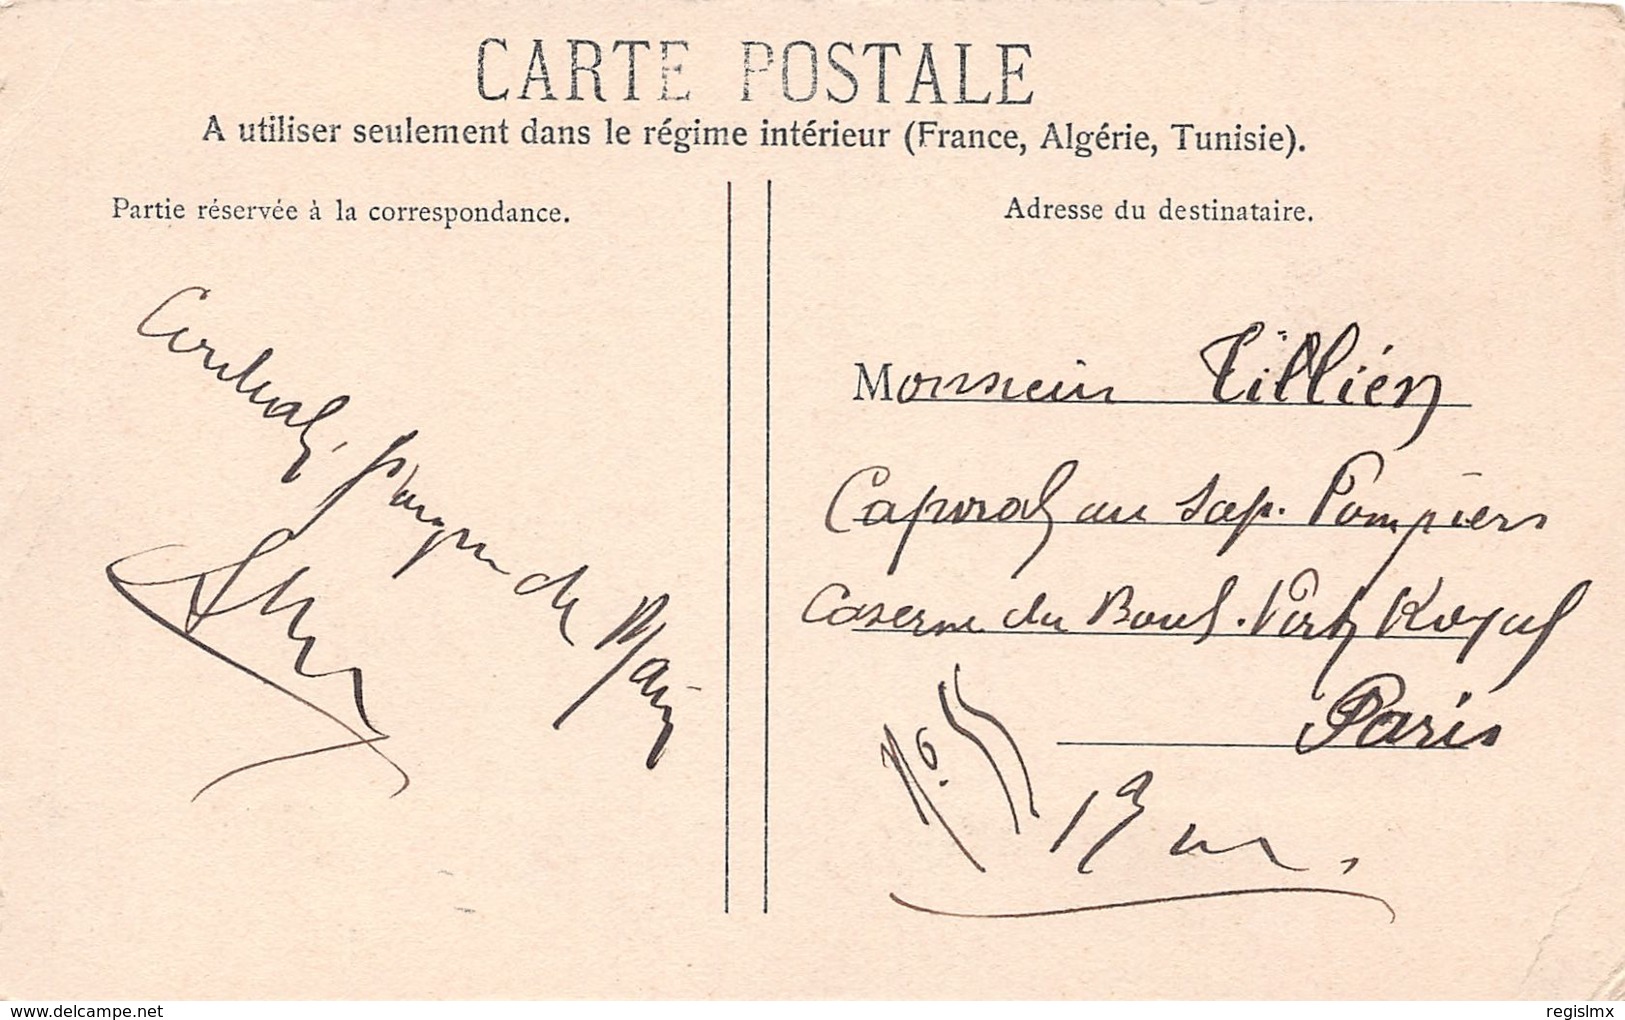 CARTE POSTALE
A utiliser seulement dans le régime intérieur (France, Algérie, Tunisie).
Partie réservée à la correspondance.
Adresse du destinataire.
Cordiale poignée de Main
Monsieur Tillien
Caporal au Sap. Pompiers
Caserne du Boul. Port Royal
Paris
No.
13
delcampe.net
regislmx